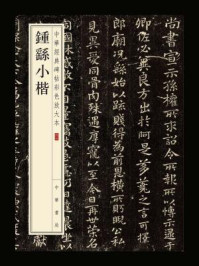 中華經典碑帖彩色放大本
鍾繇小楷
中華書局
尚書宣示孫權所求詔令所報所以博示逮于
卿佐必冀良方出於阿是芻蕘之言可擇
郎廟況繇始以疏賤得為前恩橫所盱睨公私
見異愛同骨肉殊遇厚寵以至今日再世榮名